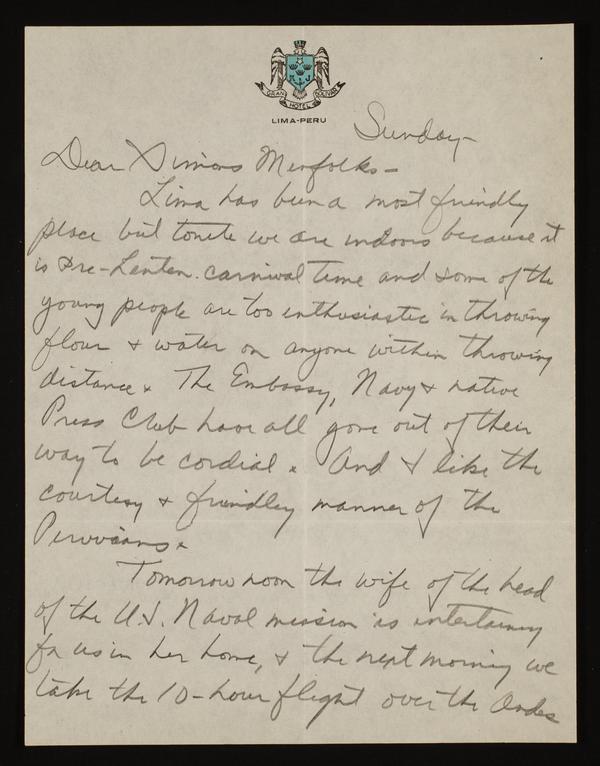 GRAN HOTEL BOLIVAR
LIMA-PERU
Sunday-
Dear Simons Menfolks-
Lima has been a most friendly
place but tonite we are indoors because it
is Pre-Lenten carnival time and some of the
young people are too enthusiastic in throwing
flour & water on anyone within throwing
distance. The Embassy, Navy & native
Press Club have all gone out of their
way to be cordial. And I like the
courtesy & friendley manner of the
Peruvians.
Tomorrow noon the wife of the head
of the U.S. Naval mission is entertaining
for us in her home, & the next morning we
take the 10-hour flight over the Andes